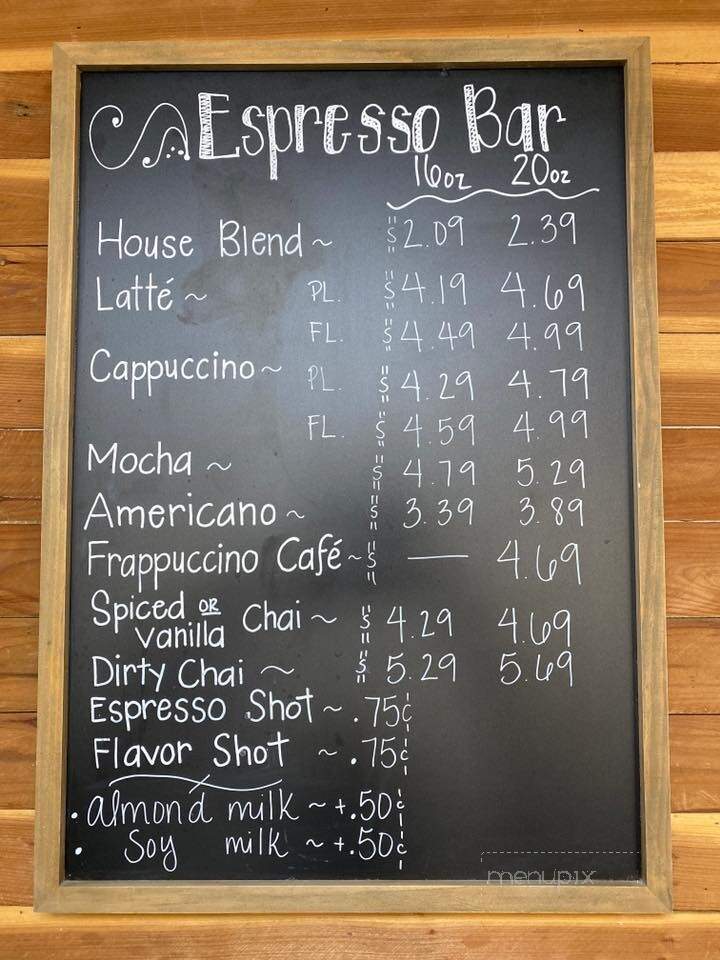 Espresso Bar
16oz 20oz
House Blend ~ $2.09 2.39
Latté ~ PL. $4.19 4.69
FL. $4.49 4.99
Cappuccino ~ PL. $4.29 4.79
FL. $4.59 4.99
Mocha ~ $4.79 5.29
Americano ~ $3.39 3.89
Frappuccino Café ~ $ — 4.69
Spiced OR Vanilla Chai ~ $4.29 4.69
Dirty Chai ~ $5.29 5.69
Espresso Shot ~ .75¢
Flavor Shot ~ .75¢
• almond milk ~ +.50¢
• Soy milk ~ +.50¢
menupix